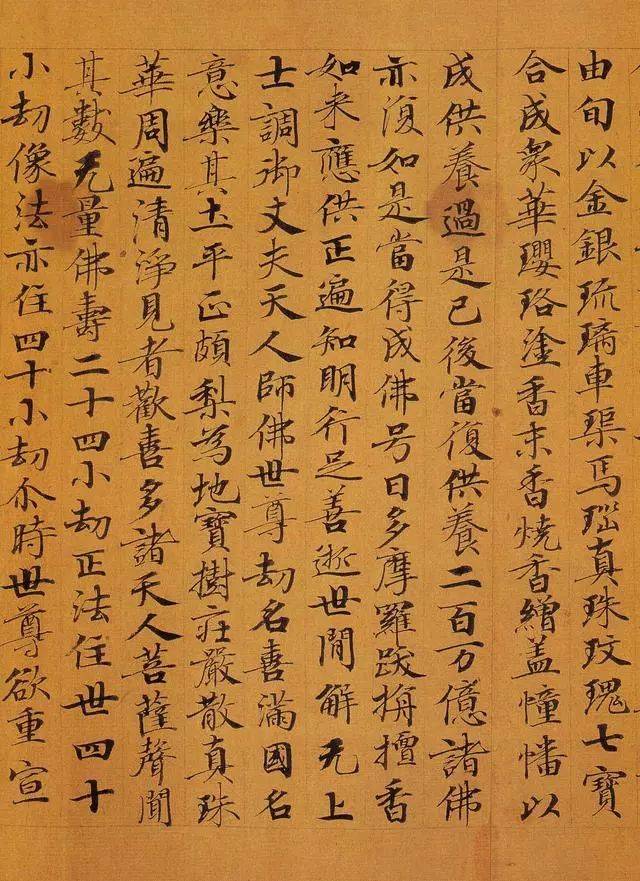 由旬以金銀琉璃車𤦲馬瑙真珠玫瑰七寶
合成衆華瓔珞塗香末香燒香繒盖幢幡以
成供養過是已後當復供養二百万億諸佛
亦復如是當得成佛号曰多摩羅跋栴檀香
如来應供正遍知明行足善逝世間解无上
士調御丈夫天人師佛世尊劫名喜滿國名
意樂其土平正頗梨為地寶樹莊嚴散真珠
華周遍清淨見者歡喜多諸天人菩薩聲聞
其數无量佛壽二十四小劫正法住世四十
小劫像法亦住四十小劫尒時世尊欲重宣